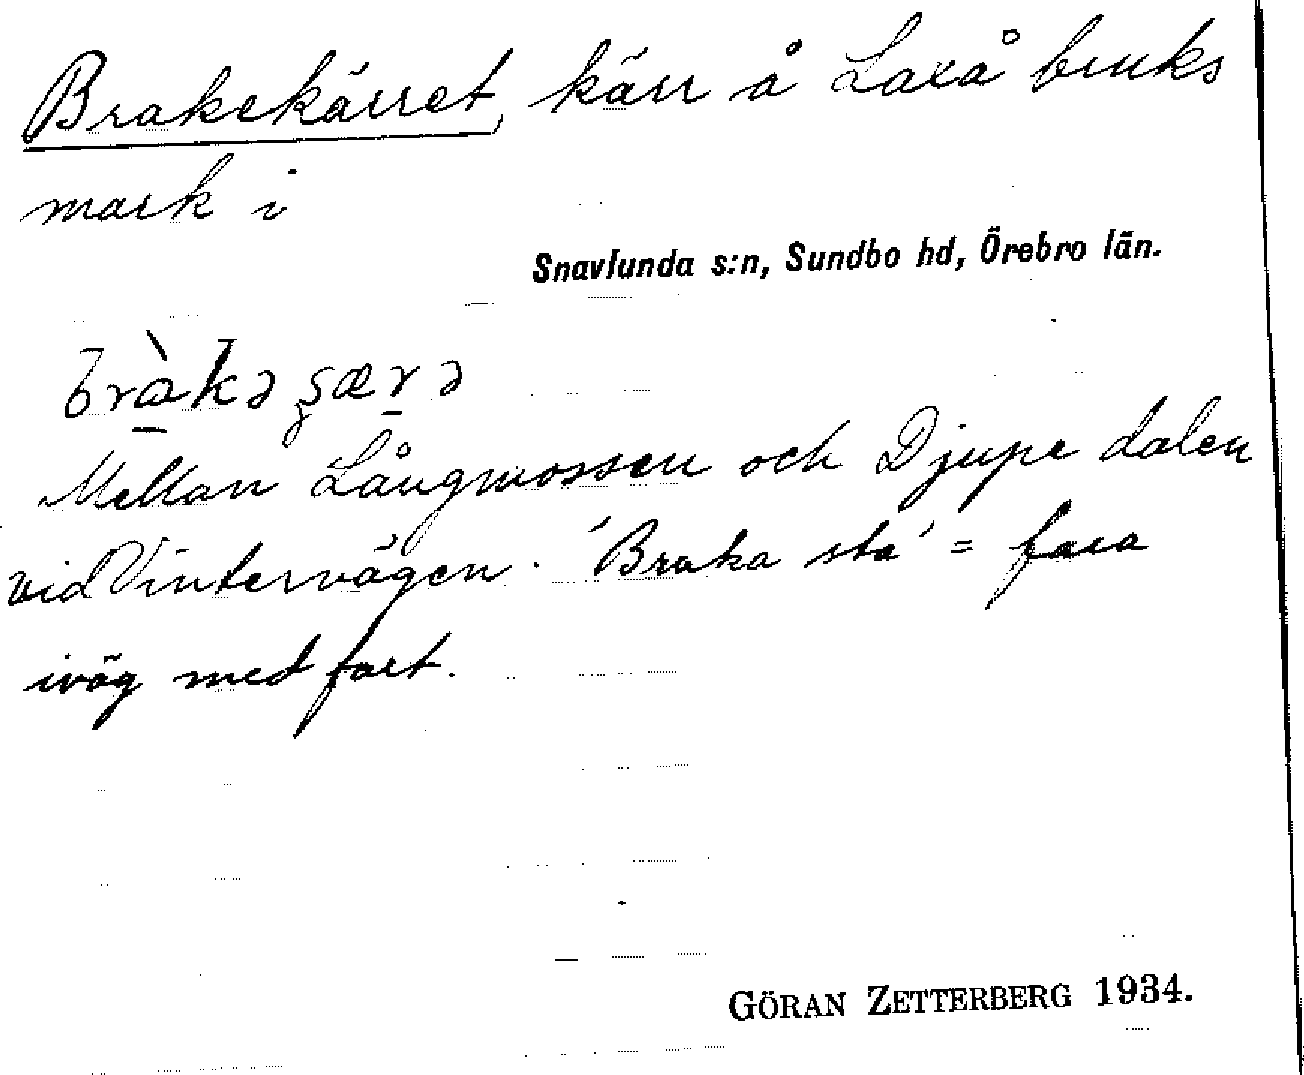 Brakekärret, kärr å Laxå bruks
mark i
Snavlunda s:n, Sundbo hd, Örebro län.
bràkə ʂærə
Mellan Långmossen och Djupe dalen
vid Vintervägen. 'Braka sta' = fara
iväg med fart.
GÖRAN ZETTERBERG 1934.